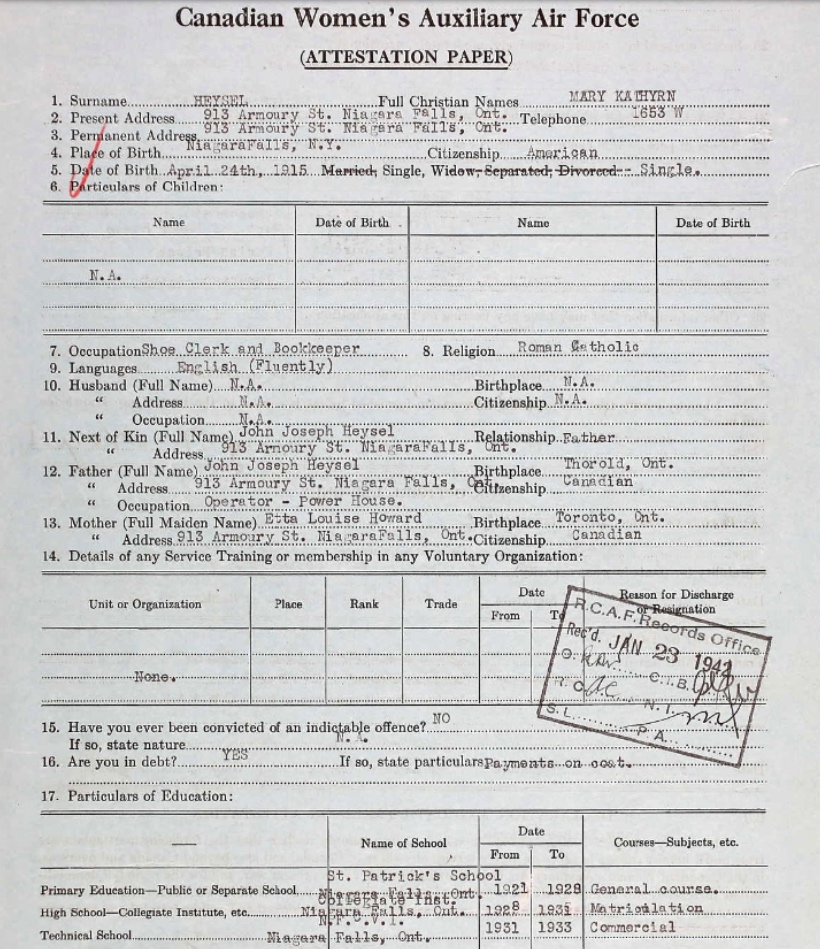 Canadian Women's Auxiliary Air Force
(ATTESTATION PAPER)
1. Surname HEYSEL Full Christian Names MARY KATHYRN
2. Present Address 913 Armoury St. Niagara Falls, Ont. Telephone 1653 W
3. Permanent Address 913 Armoury St. Niagara Falls, Ont.
4. Place of Birth NiagaraFalls, N.Y. Citizenship American
5. Date of Birth April 24th, 1915 Married, Single, Widow, Separated, Divorced:- Single.
6. Particulars of Children:
Name Date of Birth Name Date of Birth
N.A.
7. Occupation Shoe Clerk and Bookkeeper 8. Religion Roman Catholic
9. Languages English (Fluently)
10. Husband (Full Name) N.A. Birthplace N.A.
" Address N.A. Citizenship N.A.
" Occupation N.A.
11. Next of Kin (Full Name) John Joseph Heysel Relationship Father
" Address 913 Armoury St. NiagaraFalls, Ont.
12. Father (Full Name) John Joseph Heysel Birthplace Thorold, Ont.
" Address 913 Armoury St. Niagara Falls, Ont. Citizenship Canadian
" Occupation Operator - Power House.
13. Mother (Full Maiden Name) Etta Louise Howard Birthplace Toronto, Ont.
" Address 913 Armoury St. NiagaraFalls, Ont. Citizenship Canadian
14. Details of any Service Training or membership in any Voluntary Organization:
Unit or Organization Place Rank Trade Date From To Reason for Discharge or Resignation
None.
R.C.A.F. Records Office
Rec'd. JAN 23 1942
O. C.I.B.
R.C. N.I.
S.L. P.A.
15. Have you ever been convicted of an indictable offence? NO
If so, state nature N.A.
16. Are you in debt? YES If so, state particulars Payments on coat.
17. Particulars of Education:
Name of School Date From To Courses—Subjects, etc.
St. Patrick's School
Primary Education—Public or Separate School Niagara Falls, Ont. 1921 1928 General course.
Collegiate Inst.
High School—Collegiate Institute, etc. Niagara Falls, Ont. 1928 1931 Matriculation
N.F.C.V.I. 1931 1933 Commercial
Technical School Niagara Falls, Ont.